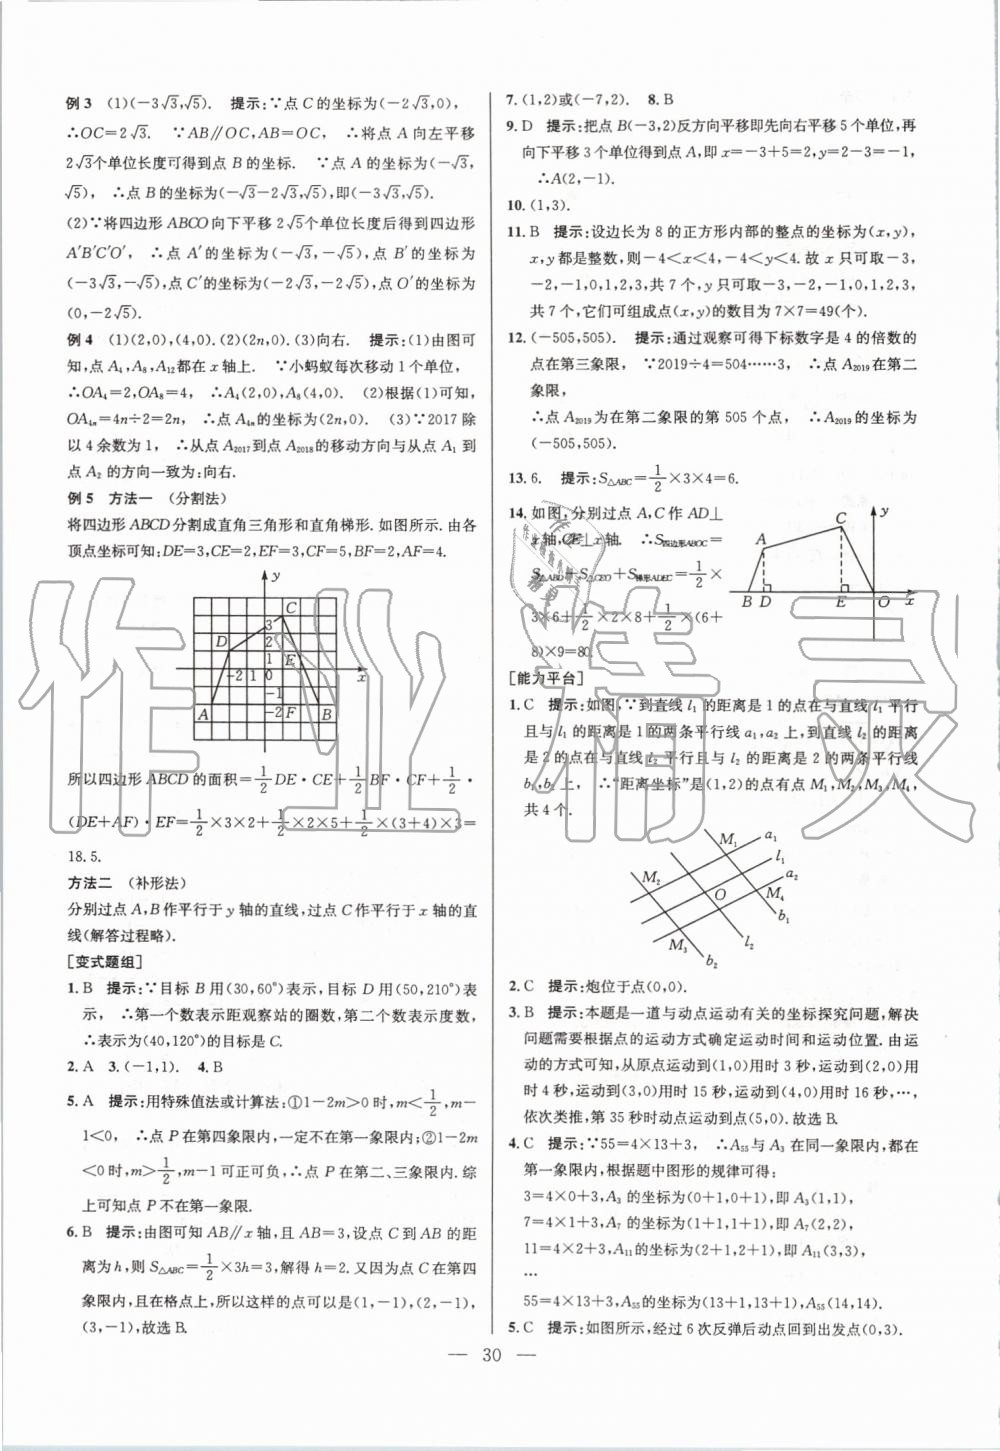 例 3 (1)(-3√3,√5). 提示:∵点 C 的坐标为(-2√3,0),
∴OC=2√3. ∵AB∥OC,AB=OC, ∴将点 A 向左平移
2√3个单位长度可得到点 B 的坐标. ∵点 A 的坐标为(-√3,
√5), ∴点 B 的坐标为(-√3-2√3,√5),即(-3√3,√5).
(2)∵将四边形 ABCO 向下平移 2√5个单位长度后得到四边形
A′B′C′O′, ∴点 A′的坐标为(-√3,-√5),点 B′的坐标为
(-3√3,-√5),点 C′的坐标为(-2√3,-2√5),点 O′的坐标为
(0,-2√5).
例 4 (1)(2,0),(4,0). (2)(2n,0). (3)向右. 提示:(1)由图可
知,点 A₄,A₈,A₁₂都在 x 轴上. ∵小蚂蚁每次移动 1 个单位,
∴OA₄=2,OA₈=4, ∴A₄(2,0),A₈(4,0). (2)根据(1)可知,
OA₄ₙ=4n÷2=2n, ∴点 A₄ₙ的坐标为(2n,0). (3)∵2017 除
以 4 余数为 1, ∴从点 A₂₀₁₇到点 A₂₀₁₈的移动方向与从点 A₁ 到
点 A₂ 的方向一致为:向右.
例 5 方法一 (分割法)
将四边形 ABCD 分割成直角三角形和直角梯形. 如图所示. 由各
顶点坐标可知:DE=3,CE=2,EF=3,CF=5,BF=2,AF=4.
y
C
3
D
2
1
E
-2 1 0
x
-1
A
-2
F
B
所以四边形 ABCD 的面积=1/2 DE·CE+1/2 BF·CF+1/2·
(DE+AF)·EF=1/2×3×2+1/2×2×5+1/2×(3+4)×3=
18.5.
方法二 (补形法)
分别过点 A,B 作平行于 y 轴的直线,过点 C 作平行于 x 轴的直
线(解答过程略).
[变式题组]
1. B 提示:∵目标 B 用(30,60°)表示,目标 D 用(50,210°)表
示, ∴第一个数表示距观察站的圈数,第二个数表示度数,
∴表示为(40,120°)的目标是 C.
2. A 3. (-1,1). 4. B
5. A 提示:用特殊值法或计算法:①1-2m>0 时,m<1/2,m-
1<0, ∴点 P 在第四象限内,一定不在第一象限内;②1-2m
<0 时,m>1/2,m-1 可正可负,∴点 P 在第二、三象限内. 综
上可知点 P 不在第一象限.
6. B 提示:由图可知 AB∥x 轴,且 AB=3,设点 C 到 AB 的距
离为 h,则 S△ABC=1/2×3h=3,解得 h=2. 又因为点 C 在第四
象限内,且在格点上,所以这样的点可以是(1,-1),(2,-1),
(3,-1),故选 B.
7. (1,2)或(-7,2). 8. B
9. D 提示:把点 B(-3,2)反方向平移即先向右平移 5 个单位,再
向下平移 3 个单位得到点 A,即 x=-3+5=2,y=2-3=-1,
∴A(2,-1).
10. (1,3).
11. B 提示:设边长为 8 的正方形内部的整点的坐标为(x,y),
x,y 都是整数,则-4<x<4,-4<y<4. 故 x 只可取-3,
-2,-1,0,1,2,3,共 7 个,y 只可取-3,-2,-1,0,1,2,3,
共 7 个,它们可组成点(x,y)的数目为 7×7=49(个).
12. (-505,505). 提示:通过观察可得下标数字是 4 的倍数的
点在第三象限, ∵2019÷4=504……3, ∴点 A₂₀₁₉在第二
象限,
∴点 A₂₀₁₉为在第二象限的第 505 个点, ∴A₂₀₁₉的坐标为
(-505,505).
13. 6. 提示:S△ABC=1/2×3×4=6.
14. 如图,分别过点 A,C 作 AD⊥
x 轴,CE⊥x 轴. ∴S四边形ABOC=
S△ABD+S△CEO+S梯形ADEC=1/2×
3×6+1/2×2×8+1/2×(6+
8)×9=80.
y
C
A
B D E O x
[能力平台]
1. C 提示:如图,∵到直线 l₁ 的距离是 1 的点在与直线 l₁ 平行
且与 l₁ 的距离是 1 的两条平行线 a₁,a₂ 上,到直线 l₂ 的距离
是 2 的点在与直线 l₂ 平行且与 l₂ 的距离是 2 的两条平行线
b₁,b₂ 上, ∴“距离坐标”是(1,2)的点有点 M₁,M₂,M₃,M₄,
共 4 个.
M₁ a₁
l₁
M₂ a₂
O M₄
b₁
M₃ l₂
b₂
2. C 提示:炮位于点(0,0).
3. B 提示:本题是一道与动点运动有关的坐标探究问题,解决
问题需要根据点的运动方式确定运动时间和运动位置. 由运
动的方式可知,从原点运动到(1,0)用时 3 秒,运动到(2,0)用
时 4 秒,运动到(3,0)用时 15 秒,运动到(4,0)用时 16 秒,…,
依次类推,第 35 秒时动点运动到点(5,0). 故选 B.
4. C 提示:∵55=4×13+3, ∴A₅₅与 A₃ 在同一象限内,都在
第一象限内,根据题中图形的规律可得:
3=4×0+3,A₃ 的坐标为(0+1,0+1),即 A₃(1,1),
7=4×1+3,A₇ 的坐标为(1+1,1+1),即 A₇(2,2),
11=4×2+3,A₁₁的坐标为(2+1,2+1),即 A₁₁(3,3),
…
55=4×13+3,A₅₅的坐标为(13+1,13+1),A₅₅(14,14).
5. C 提示:如图所示,经过 6 次反弹后动点回到出发点(0,3).
— 30 —
作业精灵